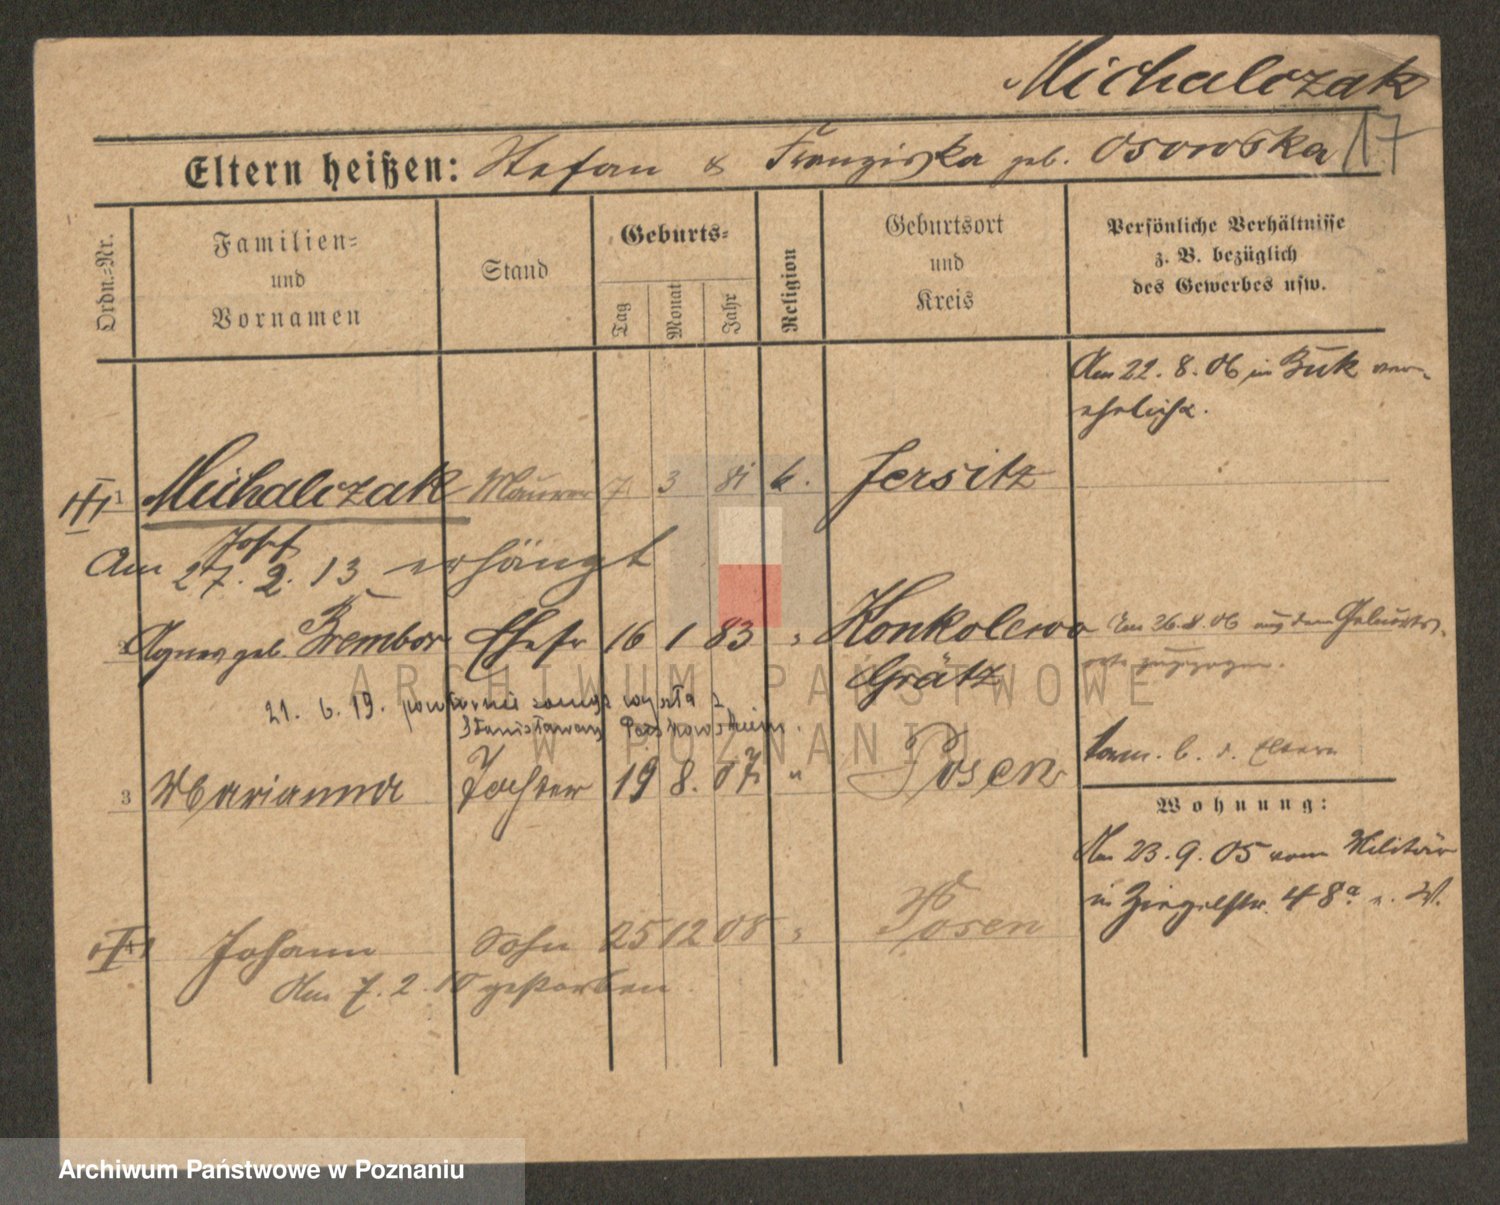 Michalczak
17
Eltern heißen: Stefan & Franziska geb. Osowska
Ordn.=Nr.
Familien=
und
Vornamen
Stand
Geburts=
Tag
Monat
Jahr
Religion
Geburtsort
und
Kreis
Persönliche Verhältnisse
z. B. bezüglich
des Gewerbes usw.
Am 22. 8. 06 in Buk ver-
ehelicht.
1 Michalczak Maurer 7 3 81 k. Jersitz
Josef
Am 27. 2. 13 erhängt
2 Agnes geb. Brembor Ehefr 16 1 83 " Konkolewo
Grätz
Am 26. 8. 06 aus dem Geburts-
orte zugezogen.
21. 6. 19. powtórnie zamąż wyszła z
Stanisławem
3 Marianna Tochter 19 8. 07 " Posen
kam. b. d. Eltern
Wohnung:
Am 23. 9. 05 vom Militär
in Ziegelstr. 48a z. W.
4 Johann Sohn 25 12 08 " Posen
Am 7. 2. 10 gestorben.
ARCHIWUM PAŃSTWOWE
W POZNANIU
Archiwum Państwowe w Poznaniu